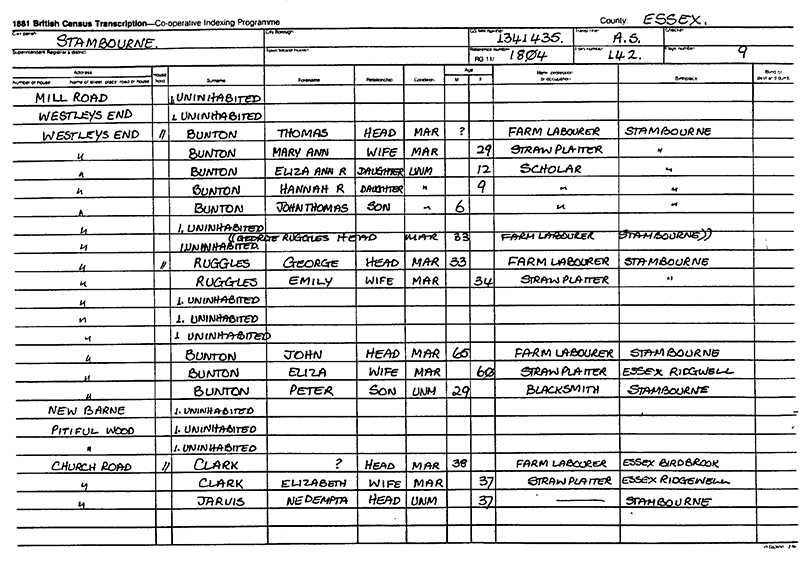 1881 British Census Transcription—Co-operative Indexing Programme County: ESSEX.
Civil parish STAMBOURNE. City Borough GS film number 1341435. Transcriber A.S. Checker
Superintendent Registrar's district Reference number RG 11/ 1804 142. 9
Address House hold Surname Forename Relationship Condition Age Rank, profession or occupation Birthplace
Number of house Name of street, place, road or house M F
MILL ROAD 1. UNINHABITED
WESTLEYS END 1. UNINHABITED
WESTLEYS END // BUNTON THOMAS HEAD MAR ? FARM LABOURER STAMBOURNE
" BUNTON MARY ANN WIFE MAR 29 STRAW PLAITER "
" BUNTON ELIZA ANN R DAUGHTER UNM 12 SCHOLAR "
" BUNTON HANNAH R DAUGHTER " 9 " "
" BUNTON JOHN THOMAS SON " 6 " "
" 1. UNINHABITED
((GEORGE RUGGLES HEAD MAR 33 FARM LABOURER STAMBOURNE))
" 1. UNINHABITED
" // RUGGLES GEORGE HEAD MAR 33 FARM LABOURER STAMBOURNE
" RUGGLES EMILY WIFE MAR 34 STRAW PLAITER "
" 1. UNINHABITED
" 1. UNINHABITED
" 1 UNINHABITED
" BUNTON JOHN HEAD MAR 65 FARM LABOURER STAMBOURNE
" BUNTON ELIZA WIFE MAR 60 STRAW PLAITER ESSEX RIDGWELL
" BUNTON PETER SON UNM 29 BLACKSMITH STAMBOURNE
NEW BARNE 1. UNINHABITED
PITIFUL WOOD 1. UNINHABITED
" 1. UNINHABITED
CHURCH ROAD // CLARK ? HEAD MAR 38 FARM LABOURER ESSEX BIRDBROOK
" CLARK ELIZABETH WIFE MAR 37 STRAW PLAITER ESSEX RIDGEWELL
" JARVIS NEDEMPTA HEAD UNM 37 — STAMBOURNE